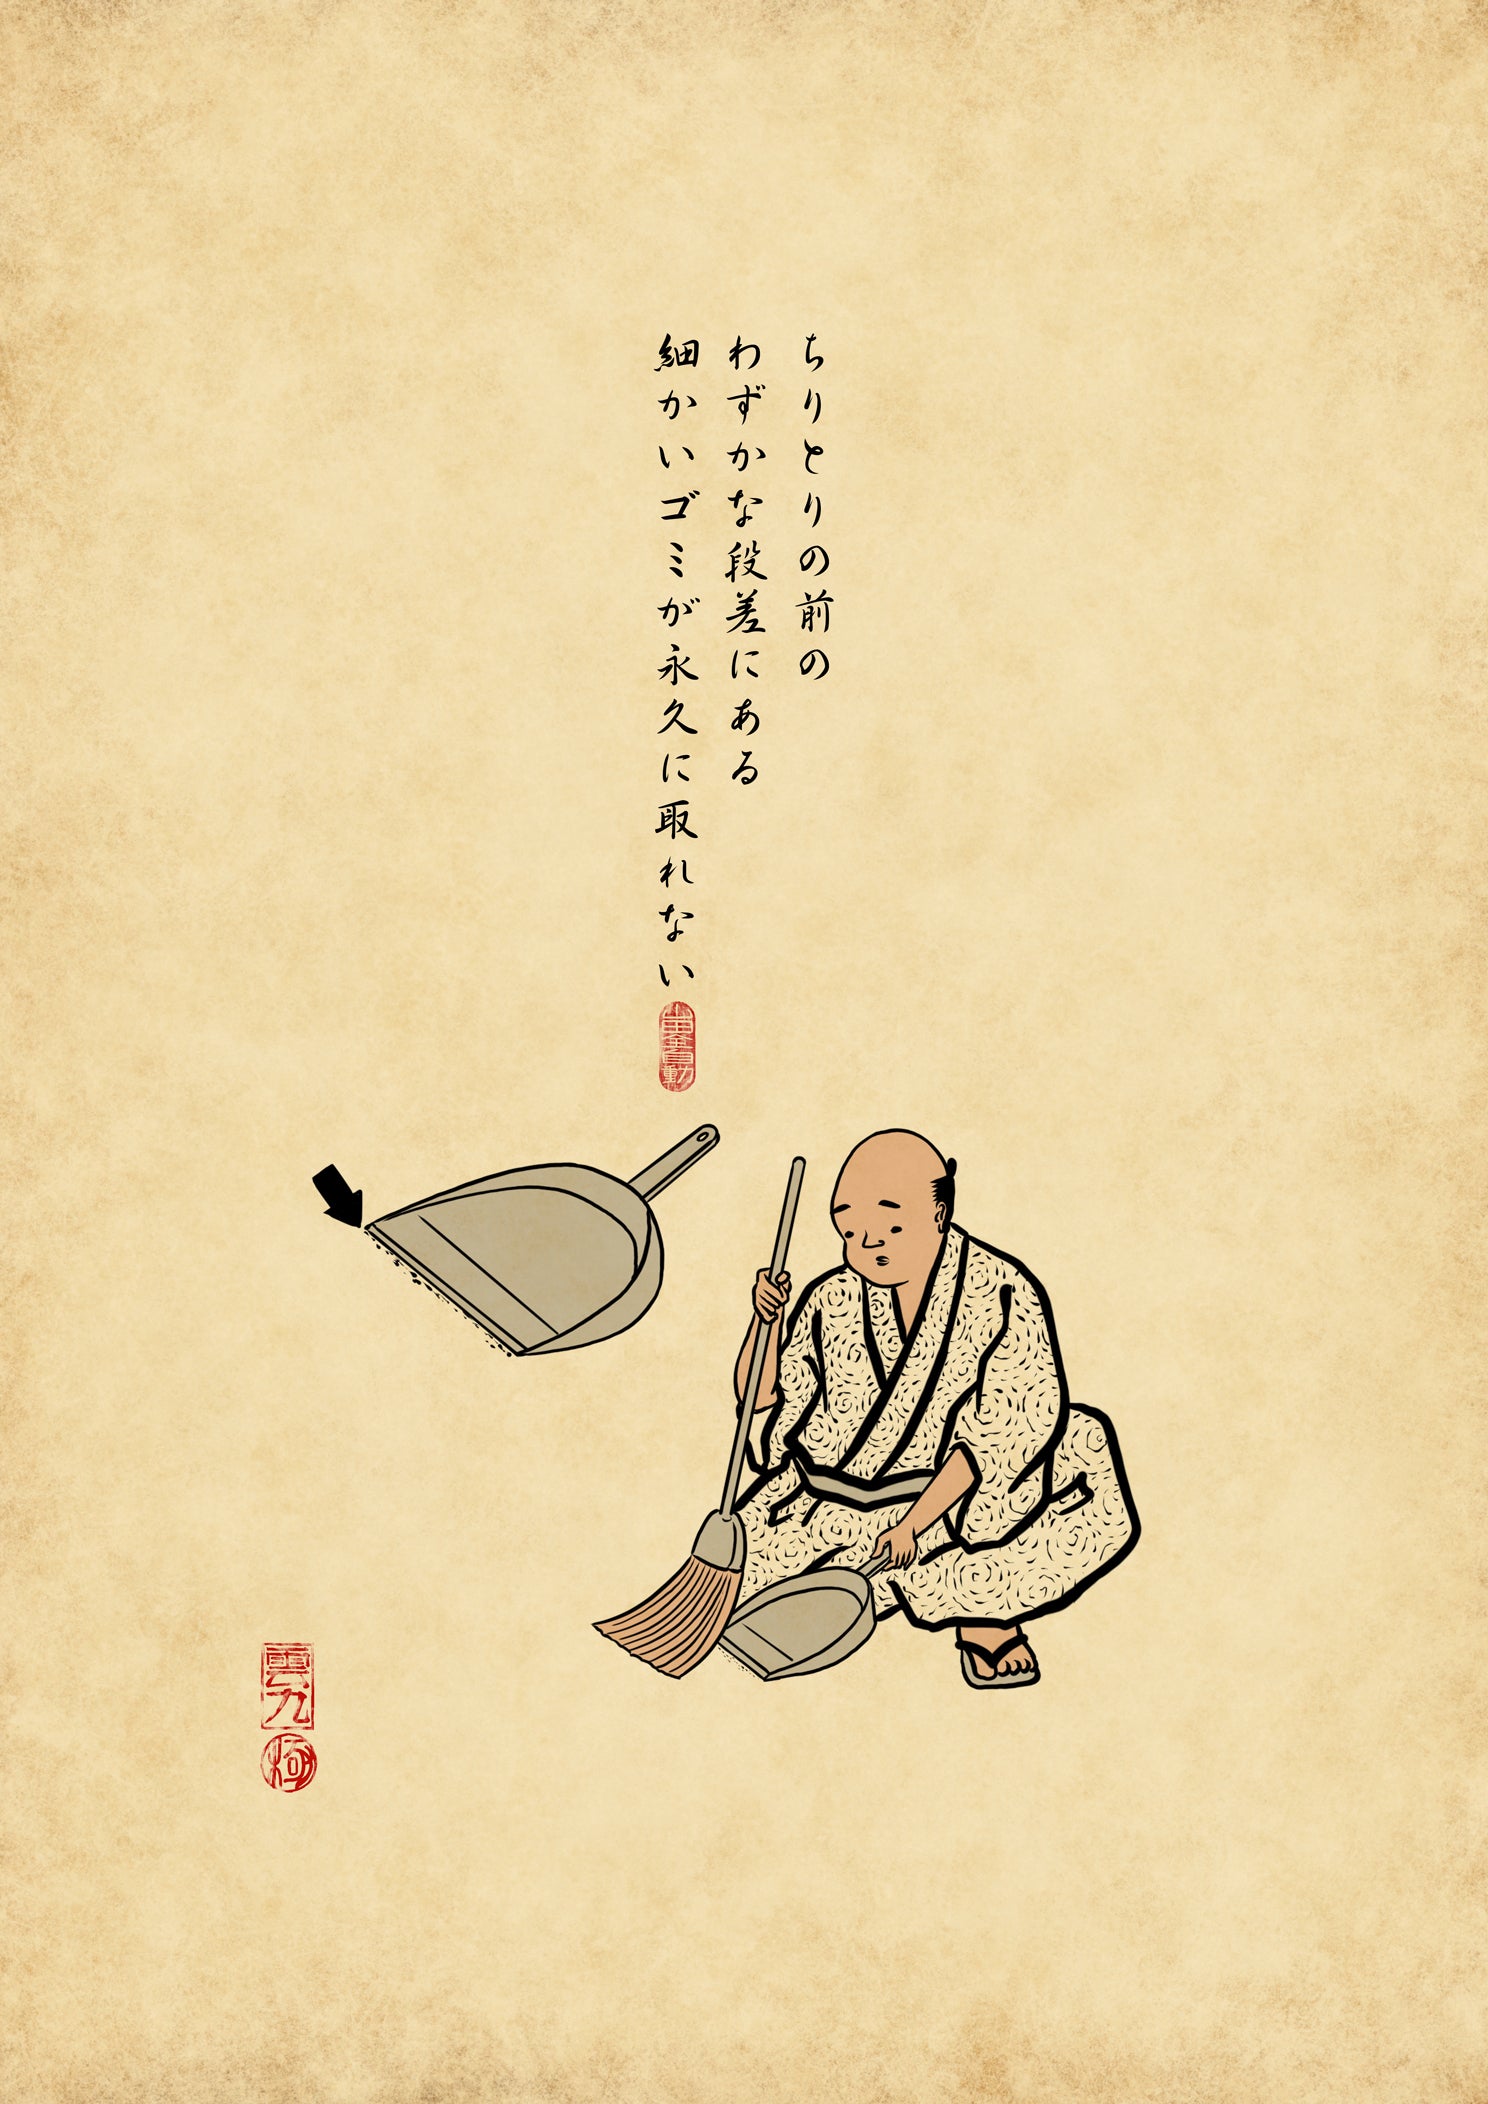 ちりとりの前の
わずかな段差にある
細かいゴミが永久に取れない